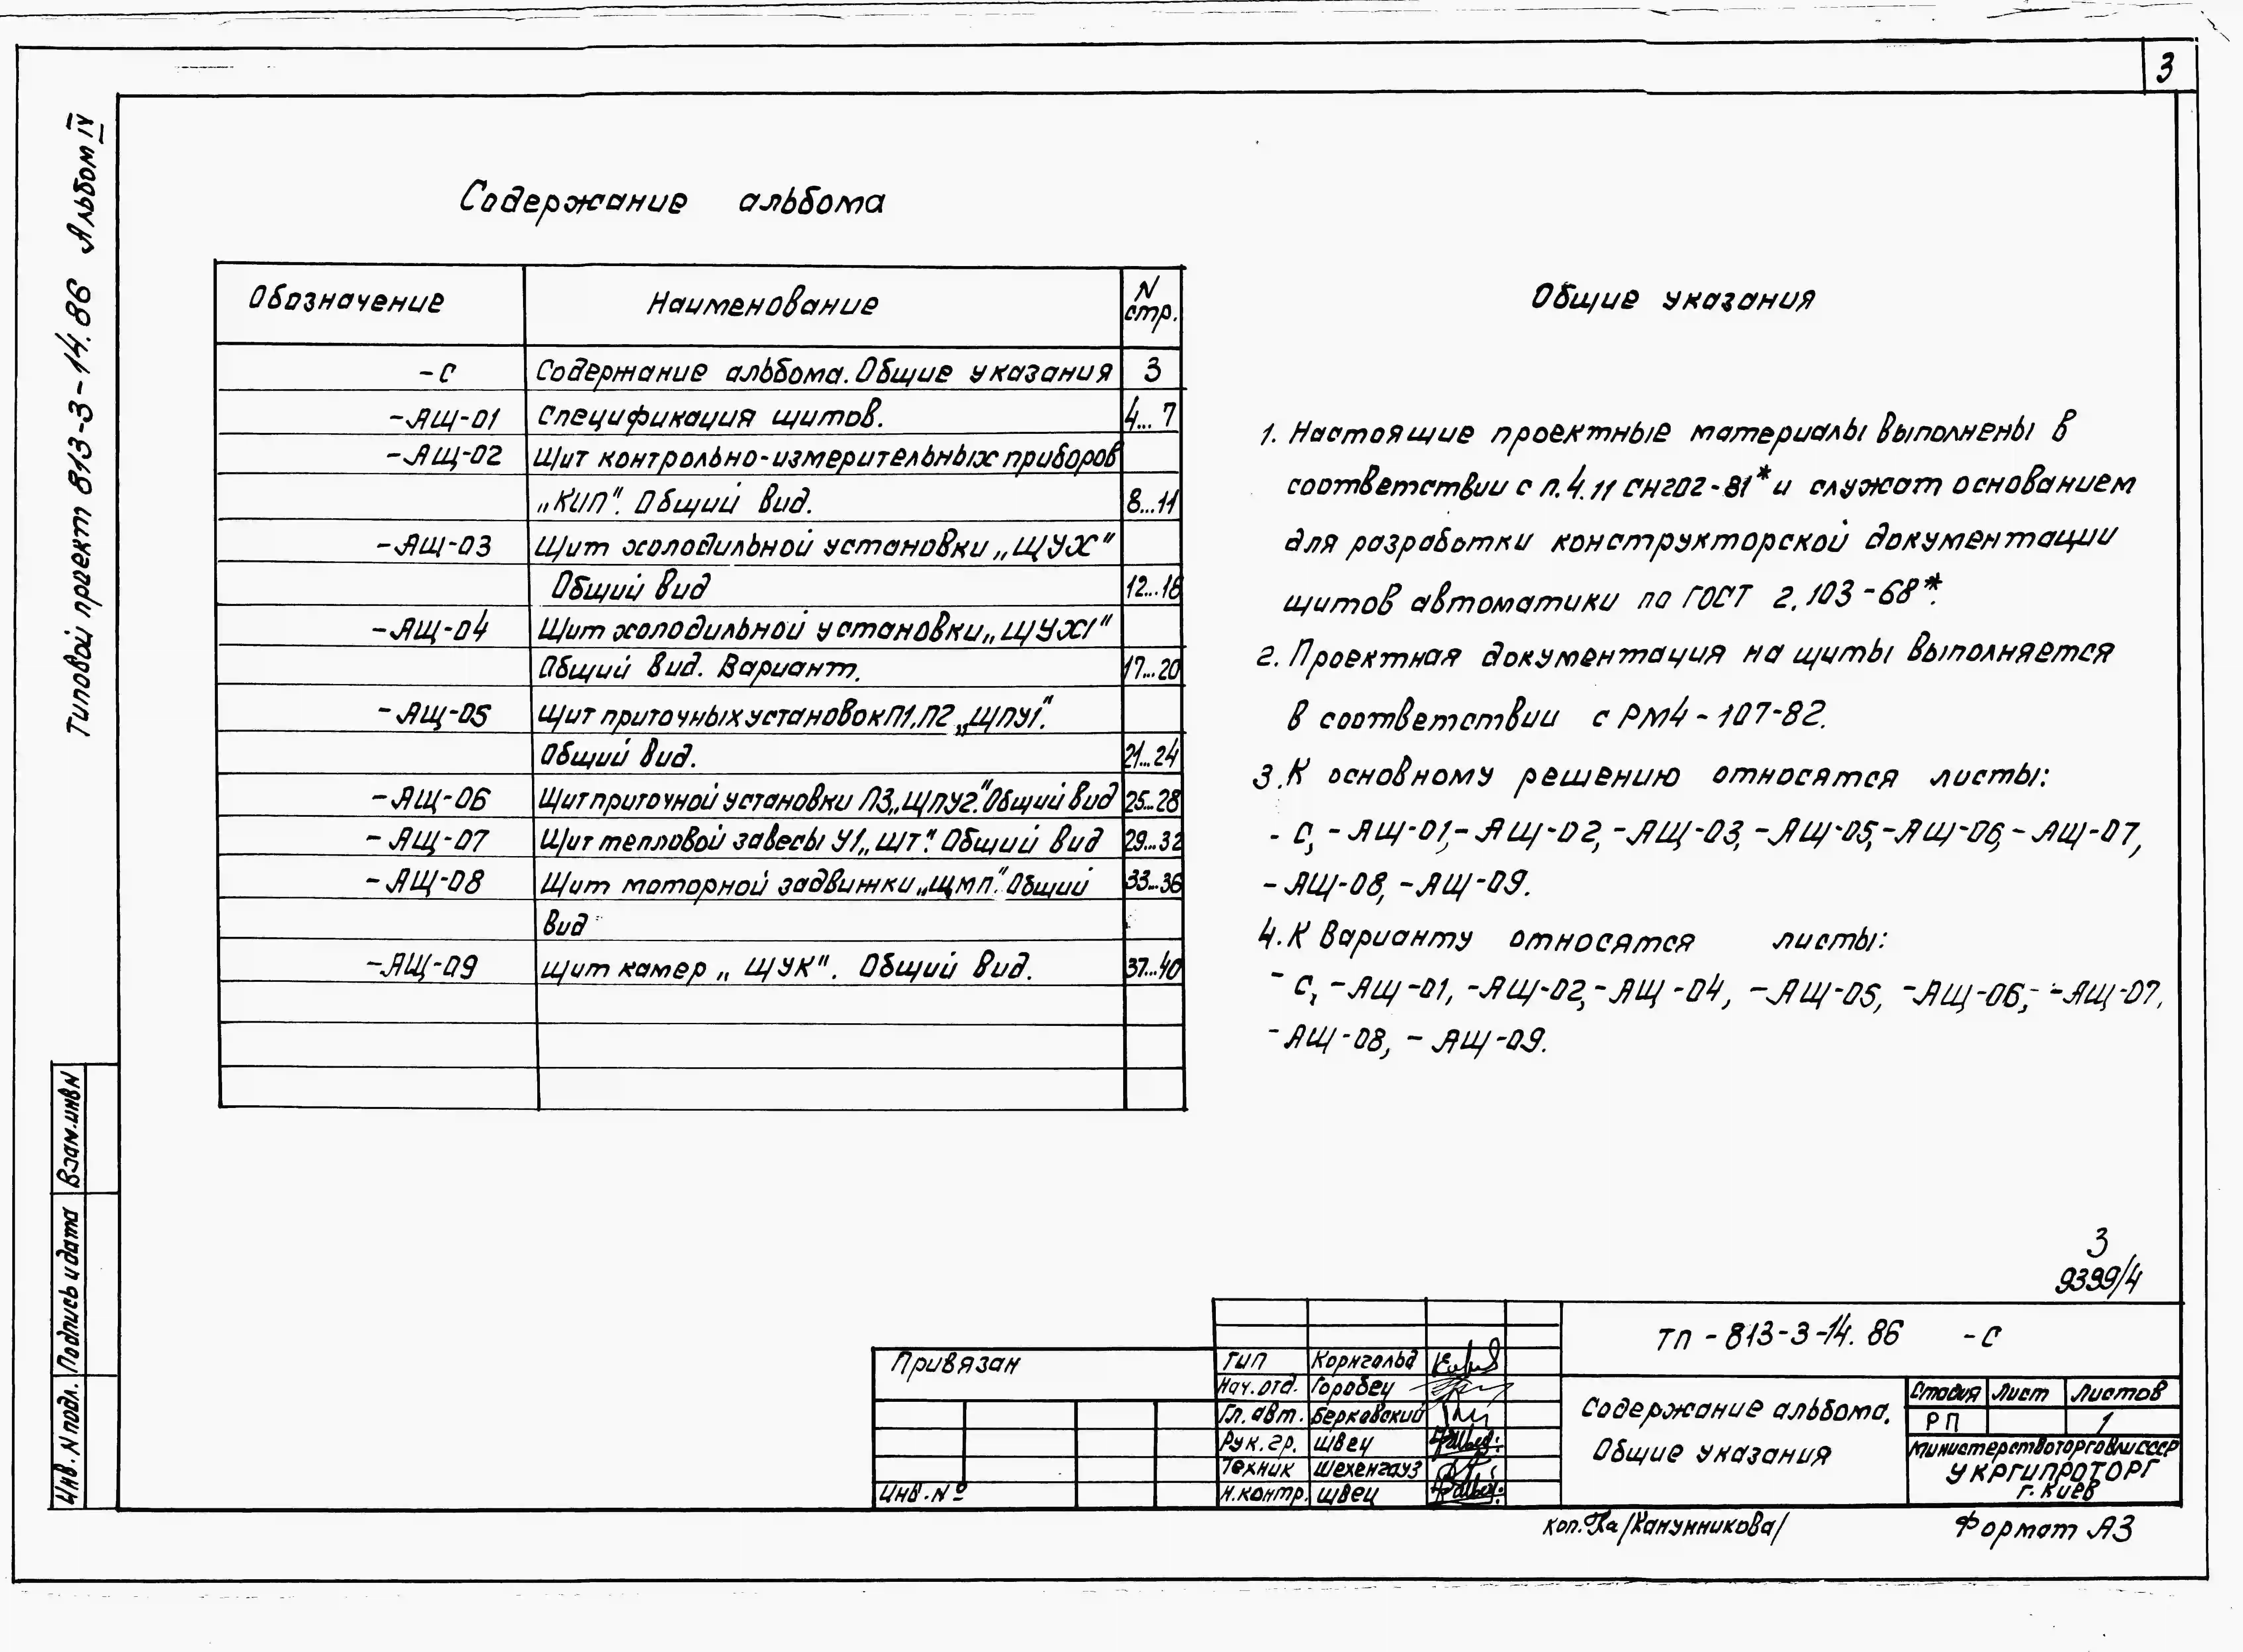 3
Типовой проект 813-3-14.86 Альбом IV
Содержание альбома
Обозначение Наименование N стр.
-С Содержание альбома. Общие указания 3
-АЩ-01 Спецификация щитов. 4...7
-АЩ-02 Щит контрольно-измерительных приборов
„КИП". Общий вид. 8...11
-АЩ-03 Щит холодильной установки „ЩУХ"
Общий вид 12...16
-АЩ-04 Щит холодильной установки „ЩУХ1"
Общий вид. Вариант. 17...20
-АЩ-05 Щит приточных установок П1, П2 „ЩПУ1".
Общий вид. 21...24
-АЩ-06 Щит приточной установки П3 „ЩПУ2". Общий вид 25...28
-АЩ-07 Щит тепловой завесы У1 „ЩТ". Общий вид 29...32
-АЩ-08 Щит моторной задвижки „ЩМП". Общий 33...36
вид
-АЩ-09 Щит камер „ЩУК". Общий вид. 37...40
Общие указания
1. Настоящие проектные материалы выполнены в
соответствии с п.4.11 СН202-81* и служат основанием
для разработки конструкторской документации
щитов автоматики по ГОСТ 2.103-68*.
2. Проектная документация на щиты выполняется
в соответствии с РМ4-107-82.
3. К основному решению относятся листы:
-С, -АЩ-01, -АЩ-02, -АЩ-03, -АЩ-05, -АЩ-06, -АЩ-07,
-АЩ-08, -АЩ-09.
4. К варианту относятся листы:
-С, -АЩ-01, -АЩ-02, -АЩ-04, -АЩ-05, -АЩ-06, -АЩ-07,
-АЩ-08, -АЩ-09.
3
9399/4
Взам.инв N
Подпись и дата
Инв. N подл.
Привязан
Инв. №
ГИП Корнгольд
Нач.отд. Горобец
Гл. авт. Берковский
Рук. гр. Швец
Техник Шехенгауз
Н.контр. Швец
ТП-813-3-14.86 -С
Содержание альбома.
Общие указания
Стадия Лист Листов
РП 1
Министерство торговли СССР
УКРГИПРОТОРГ
г. Киев
коп. /Канунникова/ Формат А3